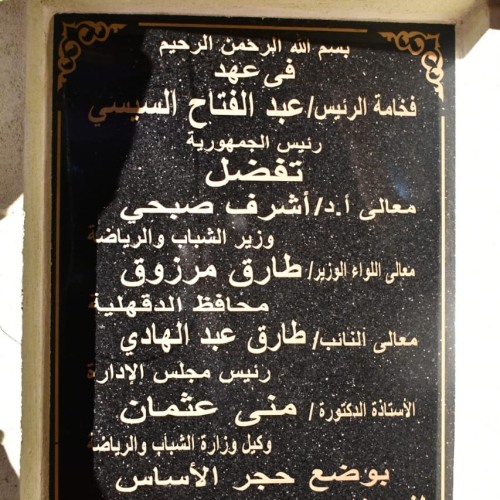 بسم الله الرحمن الرحيم
فى عهد
فخامة الرئيس/ عبد الفتاح السيسي
رئيس الجمهورية
تفضل
معالى أ.د/ أشرف صبحي
وزير الشباب والرياضة
معالى اللواء الوزير/ طارق مرزوق
محافظ الدقهلية
معالى النائب/ طارق عبد الهادي
رئيس مجلس الإدارة
الأستاذة الدكتورة / منى عثمان
وكيل وزارة الشباب والرياضة
بوضع حجر الأساس